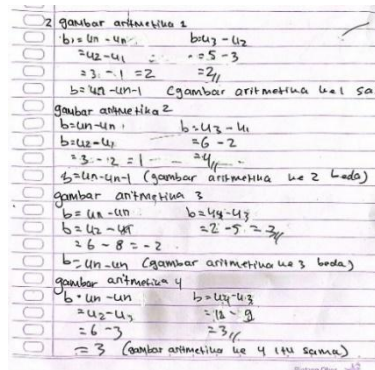 2 gambar aritmetika 1
b = un - un b = u3 - u2
= u2 - u1 = 5 - 3
= 3 - 1 = 2 = 2//
b = un - un-1 (gambar aritmetika ke 1 sa
gambar aritmetika 2
b = un - un b = u3 - u1
b = u2 - u1 = 6 - 2
= 3 - 2 = 1 = 4//
b = un - un-1 (gambar aritmetika ke 2 beda)
gambar aritmetika 3
b = un - un b = u4 - u3
b = u2 - u1 = 2 - 5 = 3//
= 6 - 8 = -2
b = un - un (gambar aritmetika ke 3 beda)
gambar aritmetika 4
b = un - un b = u4 - u3
= u2 - u3 = 12 - 9
= 6 - 3 = 3//
= 3 (gambar aritmetika ke 4 itu sama)